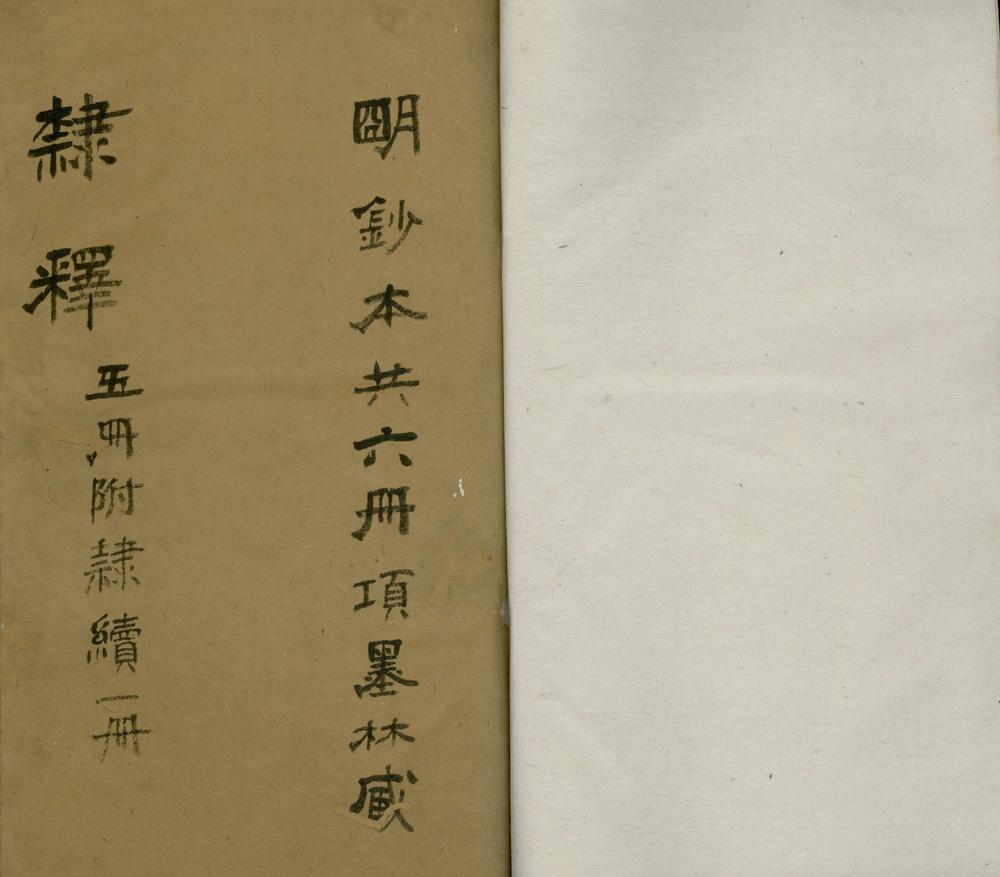 明鈔本共六冊項墨林藏
隸釋
五冊附隸續一冊